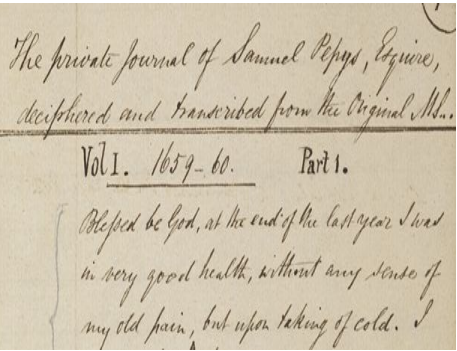 The private Journal of Samuel Pepys, Esquire,
deciphered and transcribed from the Original MS..
Vol I. 1659-60. Part 1.
Blessed be God, at the end of the last year I was
in very good health, without any sense of
my old pain, but upon taking of cold. I